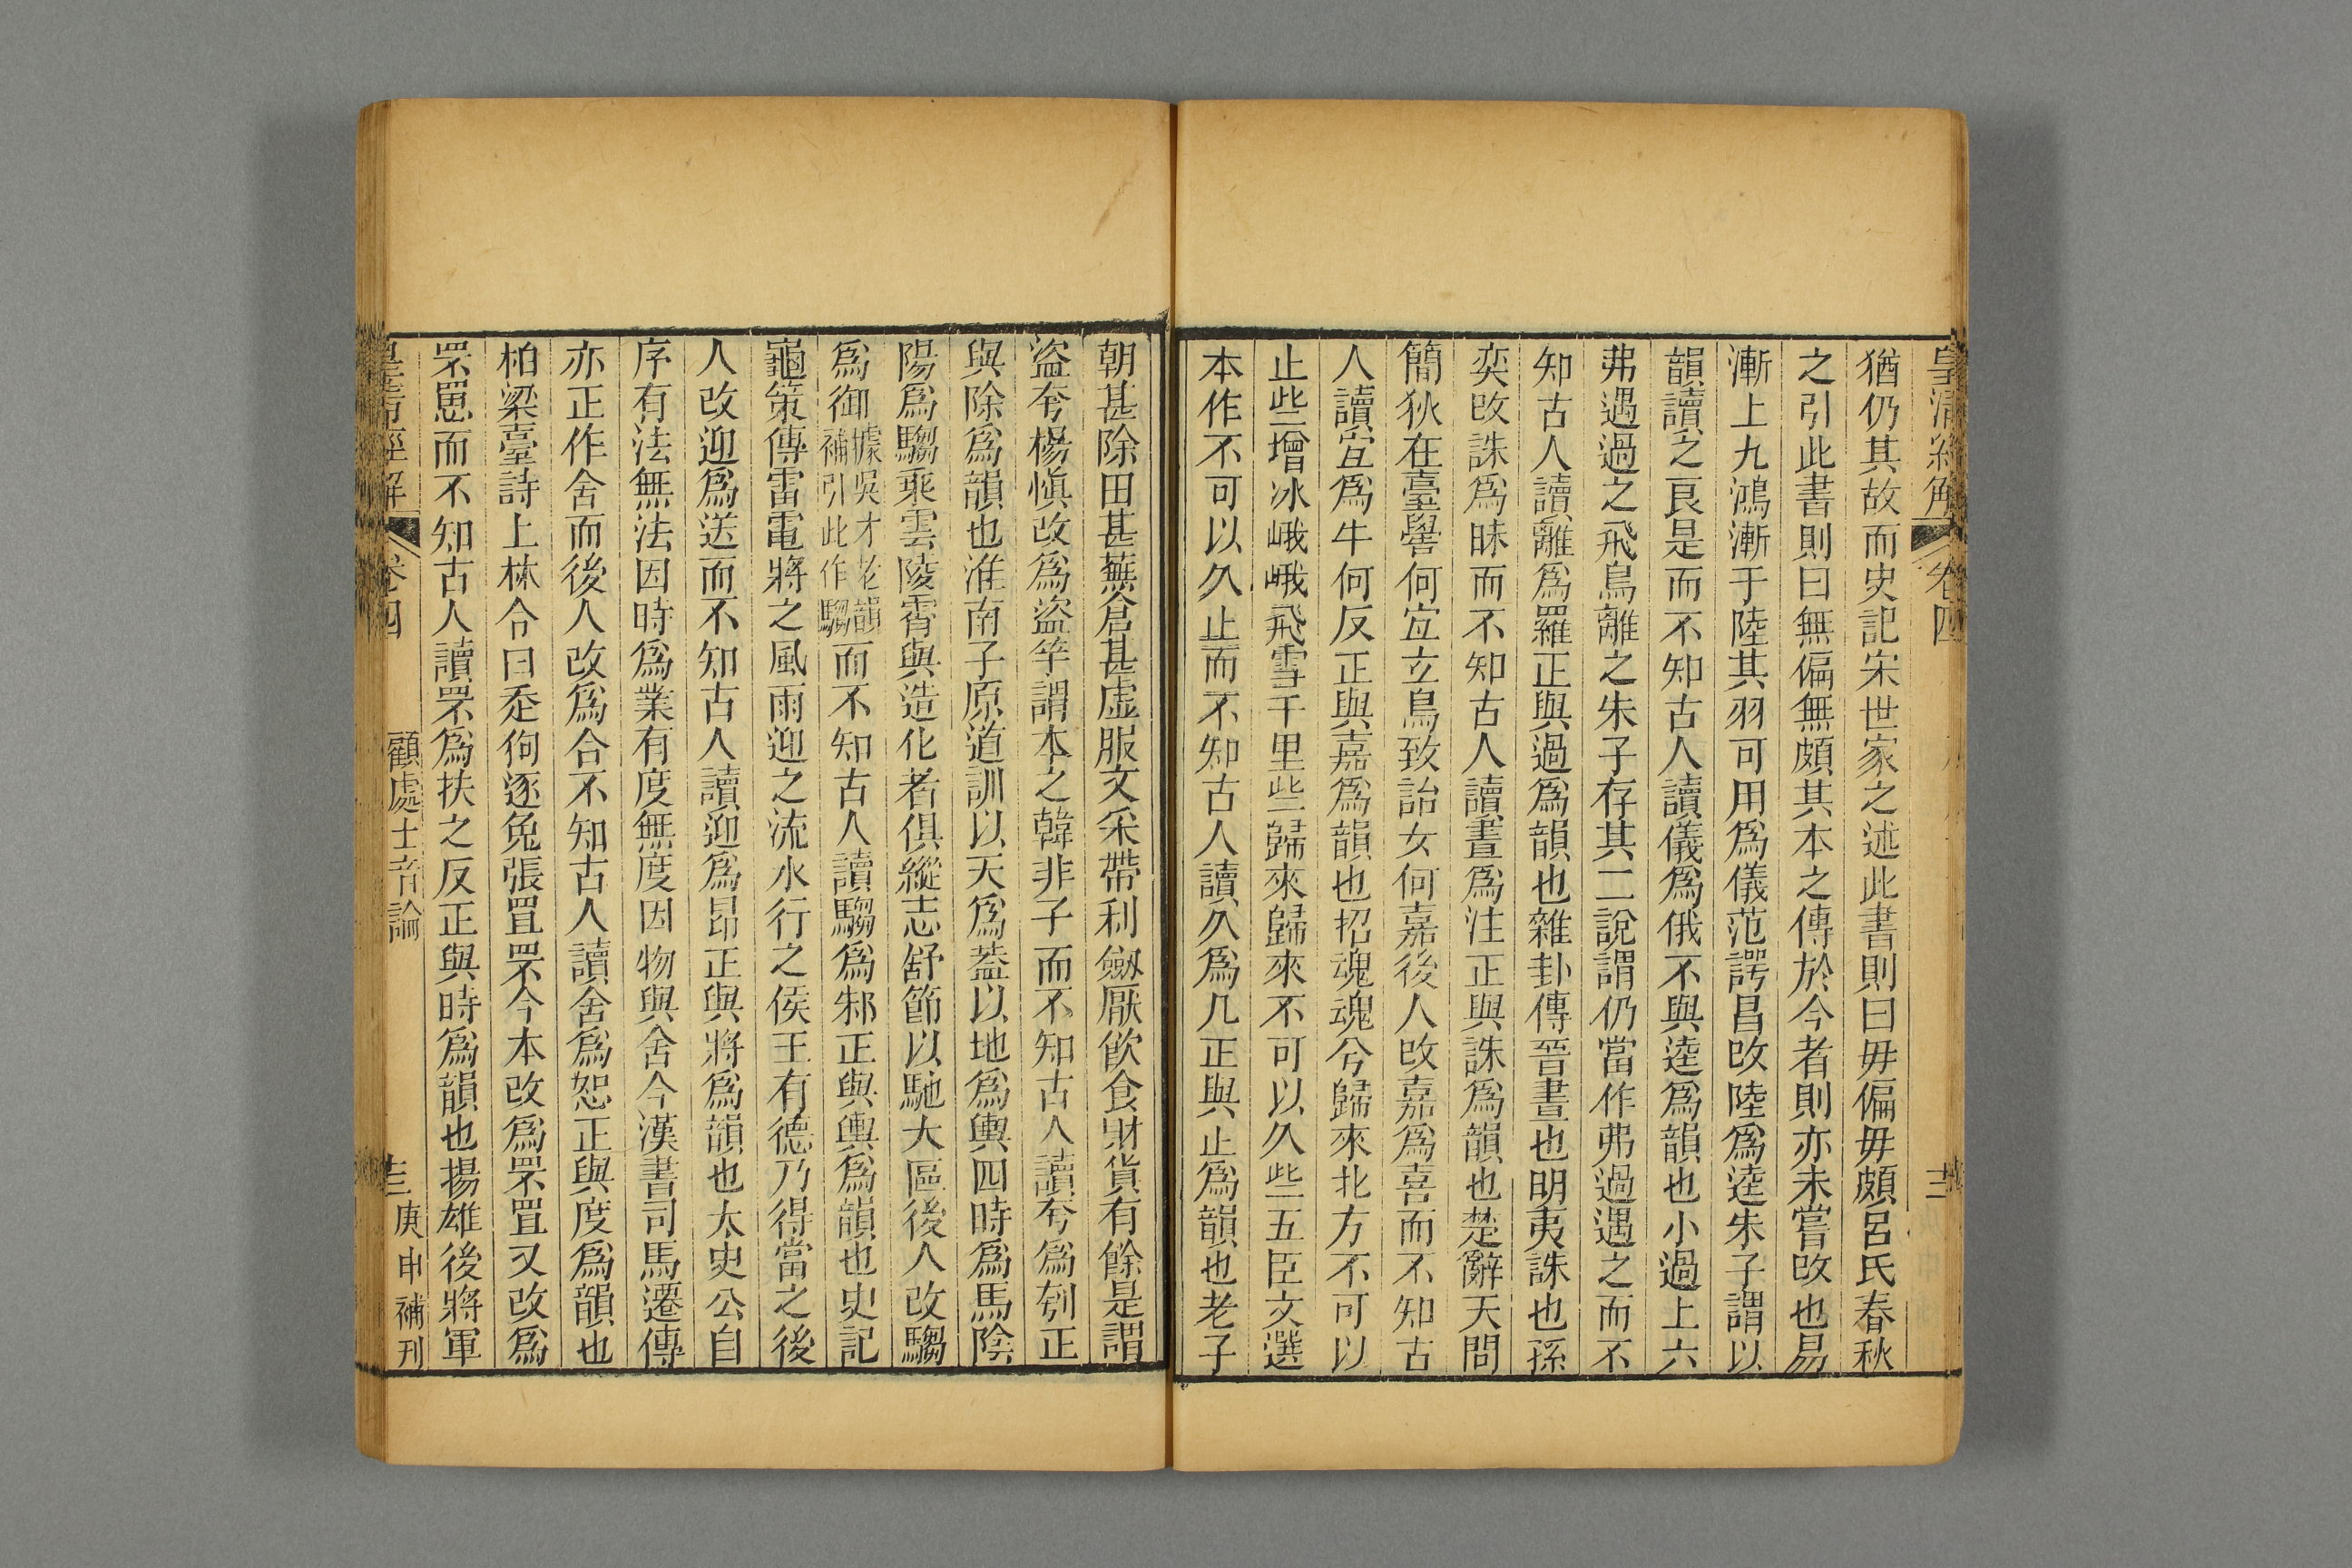 皇清經解 卷四 十二
猶仍其故而史記宋世家之述此書則曰毋偏毋頗呂氏春秋
之引此書則曰無偏無頗其本之傳於今者則亦未嘗改也易
漸上九鴻漸于陸其羽可用爲儀范諤昌改陸爲逵朱子謂以
韻讀之良是而不知古人讀儀爲俄不與逵爲韻也小過上六
弗遇過之飛鳥離之朱子存其二說謂仍當作弗過遇之而不
知古人讀離爲羅正與過爲韻也雜卦傳晉晝也明夷誅也孫
奕改誅爲昧而不知古人讀晝爲注正與誅爲韻也楚辭天問
簡狄在臺嚳何宜立鳥致詒女何嘉後人改嘉爲喜而不知古
人讀宜爲牛何反正與嘉爲韻也招魂魂兮歸來北方不可以
止些增冰峨峨飛雪千里些歸來歸來不可以久些五臣文選
本作不可以久止而不知古人讀久爲几正與止爲韻也老子
朝甚除田甚蕪倉甚虛服文采帶利劒厭飲食財貨有餘是謂
盜夸楊愼改爲盜竽謂本之韓非子而不知古人讀夸爲刳正
與除爲韻也淮南子原道訓以天爲葢以地爲輿四時爲馬陰
陽爲騶乘雲陵霄與造化者俱縱志舒節以馳大區後人改騶
爲御據吳才老韻補引此作騶而不知古人讀騶爲邾正與輿爲韻也史記
龜策傳雷電將之風雨迎之流水行之侯王有德乃得當之後
人改迎爲送而不知古人讀迎爲昂正與將爲韻也太史公自
序有法無法因時爲業有度無度因物與舍今漢書司馬遷傳
亦正作舍而後人改爲合不知古人讀舍爲恕正與度爲韻也
柏梁臺詩上林令曰走狗逐兔張罝罘今本改爲罘罝又改爲
罘罳而不知古人讀罘爲扶之反正與時爲韻也揚雄後將軍
皇淸經解 卷四 顧處士音論 十三 庚申補刊